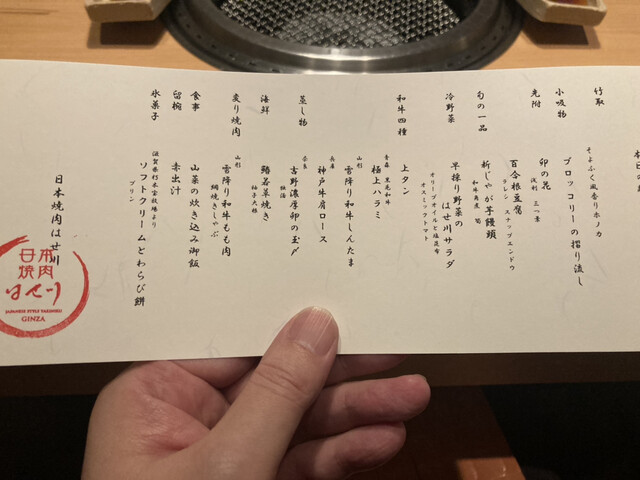 竹取
そよふく風香りホノカ
小吸物
ブロッコリーの摺り流し
先附
卯の花
浅利 三つ葉
百合根豆腐
スナップエンドウ
旬の一品
新じゃが芋饅頭
和牛角煮 筍
冷野菜
早採り野菜の
はせ川サラダ
オリーブオイルと塩昆布
オスミックトマト
和牛四種
上タン
青森 黒毛和牛
極上ハラミ
山形
雪降り和牛しんたま
兵庫
神戸牛肩ロース
蒸し物
奈良
吉野濃厚卵の玉〆
海鮮
柚子大根
炙り焼肉
山形
雪降り和牛もも肉
網焼きしゃぶ
食事
山菜の炊き込み御飯
留椀
赤出汁
氷菓子
滋賀県杉本宝牧場より
ソフトクリームとわらび餅
プリン
日本焼肉はせ川
日本
焼肉
はせ川
JAPANESE STYLE YAKINIKU
GINZA